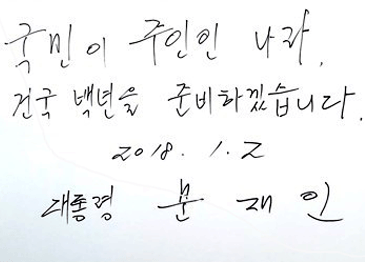 국민이 주인인 나라,
건국 백년을 준비하겠습니다.
2018. 1. 2
대통령 문 재 인